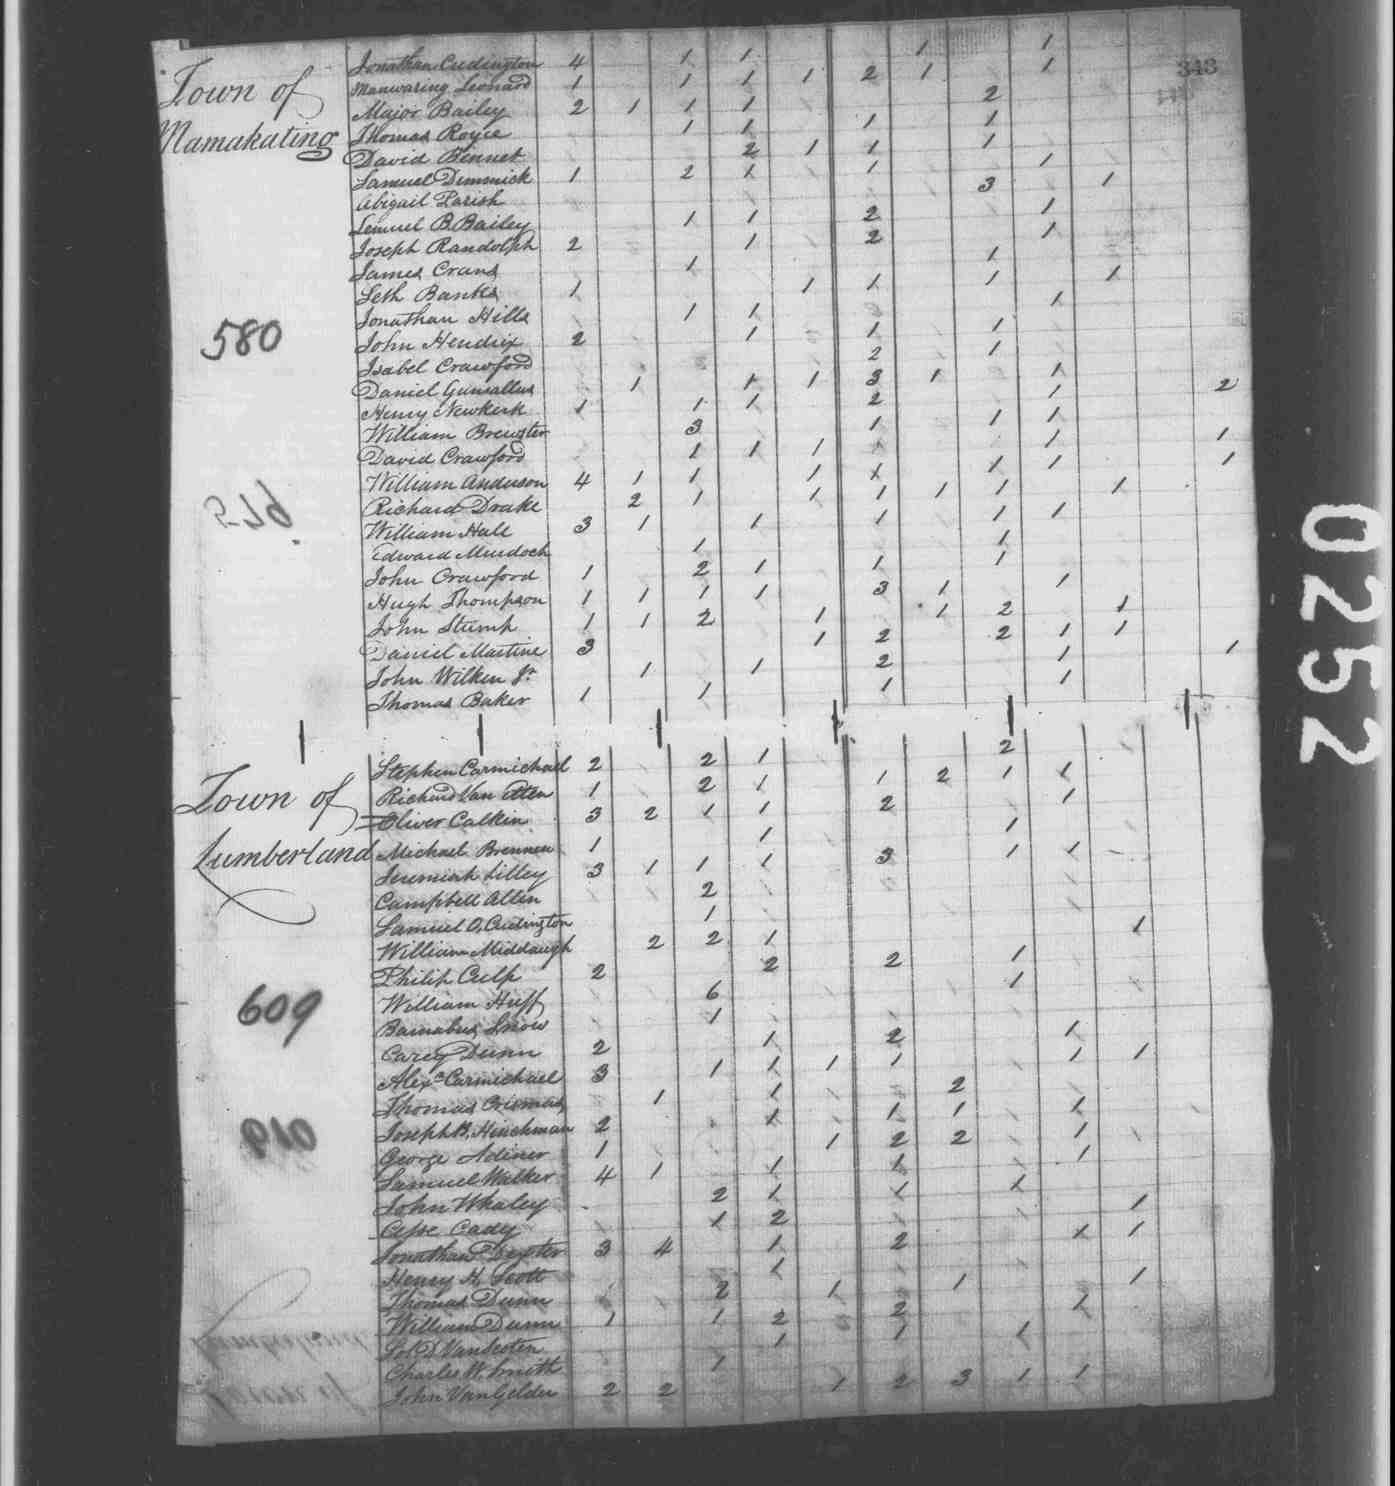 343
Town of
Mamakating
Jonathan Cudington 4 1 1 1 1
Manwaring Leonard 1 1 1 1 2 1 1
Major Bailey 2 1 1 1 2
Thomas Royce 1 1 1 1
David Bennet 2 1 1 1
Samuel Dimmick 1 2 1 1 1
Abigail Parish 3 1
Lemuel B. Bailey 1 1 2 1
Joseph Randolph 2 1 2 1
James Crans 1 1
Seth Banks 1 1 1 1 1
Jonathan Hills 1 1 1
580
John Hendrix 2 1 1 1
Isabel Crawford 2 1
Daniel Gumallus 1 1 1 3 1 1
Henry Newkerk 1 1 1 2 1 2
William Brewster 3 1 1 1
David Crawford 1 1 1 1 1
William Anderson 4 1 1 1 1 1 1 1
Richard Drake 2 1 1 1 1 1 1
William Hall 3 1 1 1 1 1
Edward Murdoch 1 1
John Crawford 1 2 1 1 1
Hugh Thompson 1 1 1 1 3 1 1
John Stump 1 1 2 1 1 2 1
Daniel Martine 3 1 2 2 1 1
John Wilkin Jr. 1 1 2 1 1
Thomas Baker 1 1 1 1
Town of
Lumberland
Stephen Carmichael 2 2 1 2
Richard Van Etten 1 2 1 1 2 1 1
Oliver Calkin 3 2 1 1 2 1
Michael Brennen 1 1 1
Jeremiah Lilley 3 1 1 1 3 1 1
Campbell Allen 2
Samuel O. Cudington 1
William Middaugh 2 2 1 1
Philip Culp 2 2 2 1
609
William Huff 6 1
Barnabus Snow 1
Carey Dunn 2 1 2 1
Alexr. Carmichael 3 1 1 1 1 1 1
Thomas Crismas 1 1 2
Joseph B. Hinchman 2 1 1 1 1
George Adiner 1 1 2 2 1
Samuel Walker 4 1 1 1 1
John Whaley 2 1 1 1
Cady 1 2 1
Jonathan Dexter 3 4 1 2 1 1
Henry H. Scott 1
Thomas Dunn 2 1 1 1
William Dunn 1 1 2 2 1
Van Scoten 1 1 1
Charles W. Smith 1
John VanGelder 2 2 1 2 3 1 1
0252